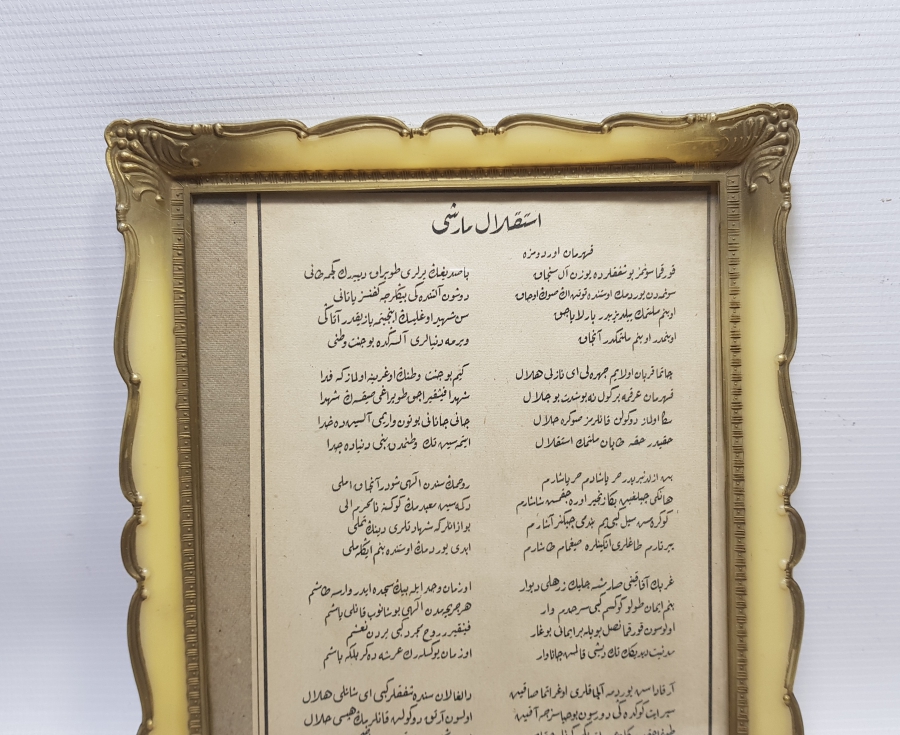 استقلال مارشى
قهرمان اوردومزه
قورقما سونمز بو شفقلرده يوزن آل سنجاق
سونمدن يوردمك اوستنده توتن اڭ صوڭ اوجاق
او بنم ملتمك ييلديزيدر پارلاياجق
او بنمدر او بنم ملتمكدر آنجاق
چاتما قربان اولايم چهره‌ڭى اى نازلى هلال
قهرمان عرقمه بر كول نه بو شدت بو جلال
سڭا اولماز دوكولن قانلرمز صوكره حلال
حقيدر حقه طاپان ملتمك استقلال
بن ازلدنبريدر حر ياشادم حر ياشارم
هانكى چيلغين بڭا زنجير اوره‌جقمش شاشارم
كوكره‌مش سيل كبى‌يم بندمى چيكنر آشارم
ييرتارم طاغلرى انكينلره صيغمام طاشارم
غربك آفاقنى صارمشسه چليك زرهلى ديوار
بنم ايمان طولو كوكسم كبى سرحدم وار
اولوسون قورقما نصل بويله بر ايمانى بوغار
مدنيت ديديكك تك ديشى قالمش جاناوار
آرقاداش يورديمه آلچاقلرى اوغراتما صاقين
سپر ايت كوكده‌كى دورسون بو حياسزجه آقين
باصديغك يرلرى طوپراق دييه‌رك كچمه طانى
دوشون آلتنده‌كى بيڭلرجه كفنسز ياتانى
سن شهيد اوغليسڭ اينجيتمه يازيقدر آتاڭى
ويرمه دنيالرى آلسه‌ڭده بو جنت وطنى
كيم بو جنت وطنك اوغرينه اولماز كه فدا
شهدا فيشقيراجق طوپراغى صيقسه‌ڭ شهدا
جانى جانانى بوتون واريمى آلسين ده خدا
ايتمه‌سين تك وطنمدن بنى دنياده جدا
روحمك سندن الهى شودر آنجاق املى
دكمه‌سين معبدمك كوكسنه نامحرم الى
بو اذانلر كه شهادتلرى دينك تملى
ابدى يوردمك اوستنده بنم ايڭله‌ملى
او زمان وجد ايله بيك سجده ايدر وارسه طاشم
هر جريحه‌مدن الهى بوشانوب قانلى ياشم
فيشقيرر روح مجرد كبى يردن نعشم
او زمان يوكسله‌رك عرشه دكر بلكه باشم
دالغالان سنده شفقلر كبى اى شانلى هلال
اولسون آرتق دوكولن قانلريمك هپسى حلال